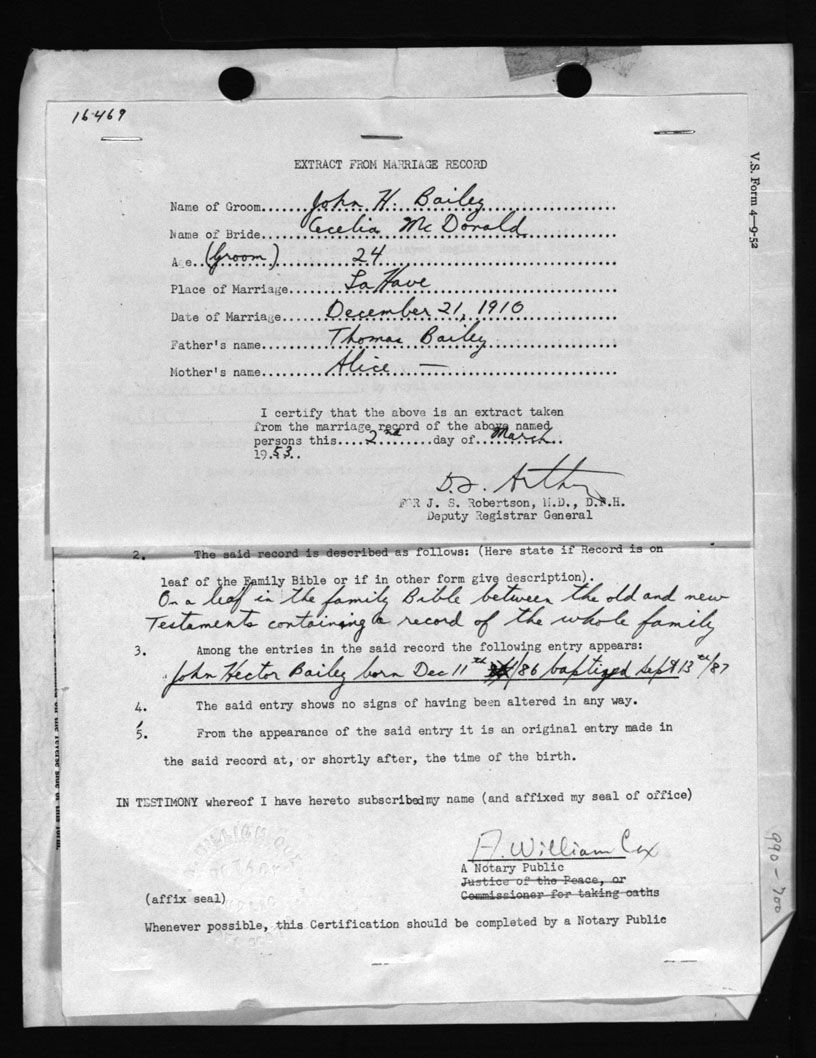 16469
V.S. Form 4-9-52
EXTRACT FROM MARRIAGE RECORD
Name of Groom......John H. Bailey..................
Name of Bride......Cecelia McDonald............
Age..(Groom)..........24...............................
Place of Marriage........La Have........................
Date of Marriage......December 21, 1910............
Father's name.........Thomas Bailey..................
Mother's name.........Alice —........................
I certify that the above is an extract taken
from the marriage record of the above named
persons this....2nd........day of..March..
1953..
FOR J. S. Robertson, M.D., D.P.H.
Deputy Registrar General
2. The said record is described as follows: (Here state if Record is on
leaf of the Family Bible or if in other form give description).
On a leaf in the family Bible between the old and new
Testaments containing a record of the whole family
3. Among the entries in the said record the following entry appears:
John Hector Bailey born Dec 11th /86 baptized Sept 13th /87
4. The said entry shows no signs of having been altered in any way.
5. From the appearance of the said entry it is an original entry made in
the said record at, or shortly after, the time of the birth.
IN TESTIMONY whereof I have hereto subscribed my name (and affixed my seal of office)
A. William Cox
A Notary Public
Justice of the Peace, or
Commissioner for taking oaths
(affix seal)
Whenever possible, this Certification should be completed by a Notary Public
990-700